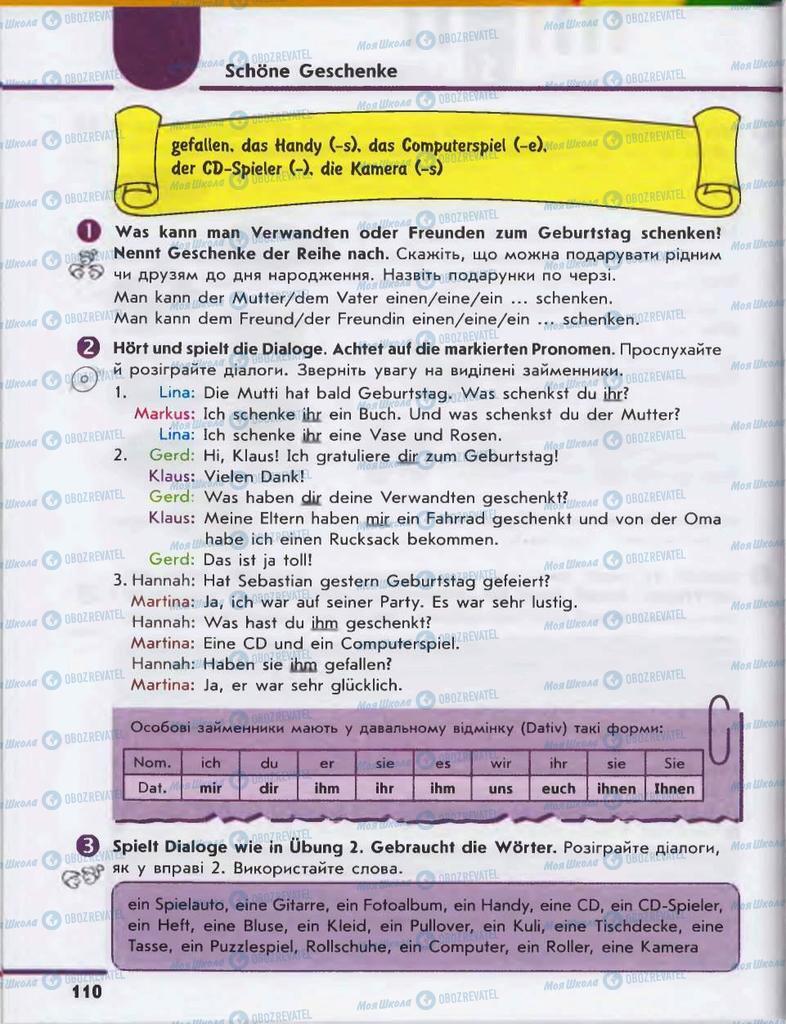 Schöne Geschenke
gefallen, das Handy (-s), das Computerspiel (-e),
der CD-Spieler (-), die Kamera (-s)
1 Was kann man Verwandten oder Freunden zum Geburtstag schenken?
Nennt Geschenke der Reihe nach. Скажіть, що можна подарувати рідним
чи друзям до дня народження. Назвіть подарунки по черзі.
Man kann der Mutter/dem Vater einen/eine/ein ... schenken.
Man kann dem Freund/der Freundin einen/eine/ein ... schenken.
2 Hört und spielt die Dialoge. Achtet auf die markierten Pronomen. Прослухайте
й розіграйте діалоги. Зверніть увагу на виділені займенники.
1. Lina: Die Mutti hat bald Geburtstag. Was schenkst du ihr?
Markus: Ich schenke ihr ein Buch. Und was schenkst du der Mutter?
Lina: Ich schenke ihr eine Vase und Rosen.
2. Gerd: Hi, Klaus! Ich gratuliere dir zum Geburtstag!
Klaus: Vielen Dank!
Gerd: Was haben dir deine Verwandten geschenkt?
Klaus: Meine Eltern haben mir ein Fahrrad geschenkt und von der Oma
habe ich einen Rucksack bekommen.
Gerd: Das ist ja toll!
3. Hannah: Hat Sebastian gestern Geburtstag gefeiert?
Martina: Ja, ich war auf seiner Party. Es war sehr lustig.
Hannah: Was hast du ihm geschenkt?
Martina: Eine CD und ein Computerspiel.
Hannah: Haben sie ihm gefallen?
Martina: Ja, er war sehr glücklich.
Особові займенники мають у давальному відмінку (Dativ) такі форми:
Nom. ich du er sie es wir ihr sie Sie
Dat. mir dir ihm ihr ihm uns euch ihnen Ihnen
3 Spielt Dialoge wie in Übung 2. Gebraucht die Wörter. Розіграйте діалоги,
як у вправі 2. Використайте слова.
ein Spielauto, eine Gitarre, ein Fotoalbum, ein Handy, eine CD, ein CD-Spieler,
ein Heft, eine Bluse, ein Kleid, ein Pullover, ein Kuli, eine Tischdecke, eine
Tasse, ein Puzzlespiel, Rollschuhe, ein Computer, ein Roller, eine Kamera
110
Моя Школа OBOZREVATEL